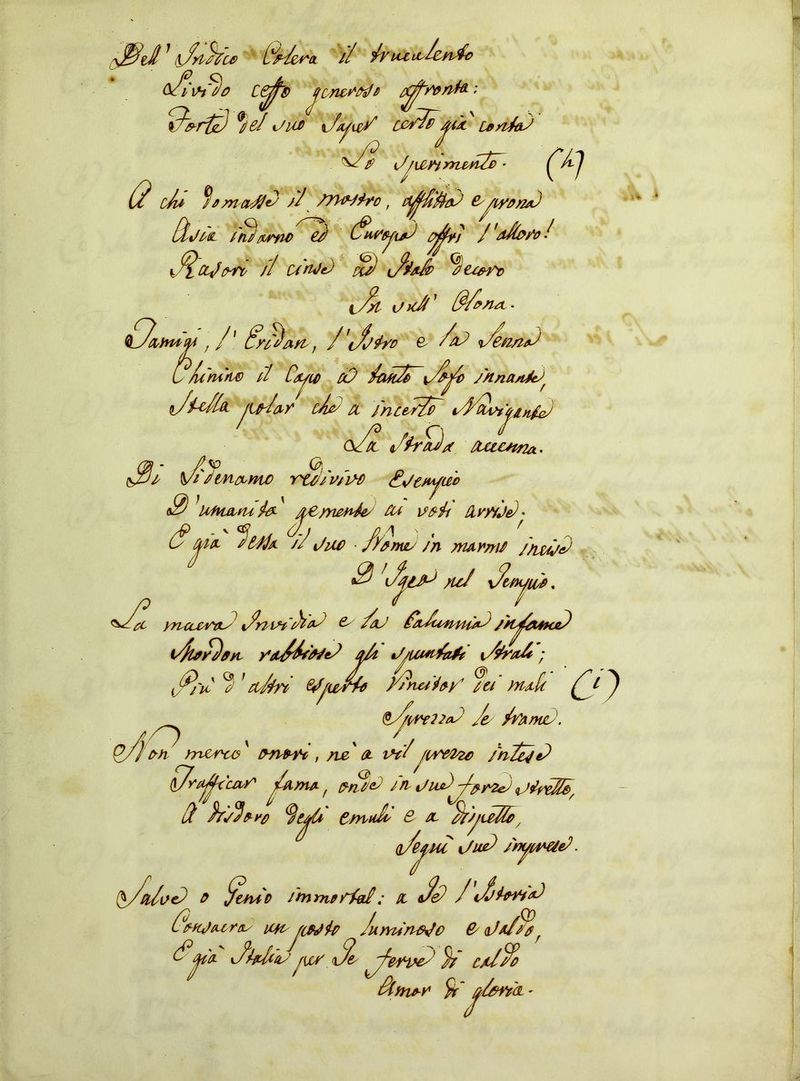 Dell' Indico Colera il truculento
Livido ceffo generoso affronta:
Forte del suo saper certo già conta
Lo sperimento. (h)
A chi domasse il mostro, afflitta e prona
Asia indarno ed Europa offrì l'alloro!
Rasori il cinse ad Italo decoro
In sull' Olona.
Tamigi, l' Eridan, l'Istro e la Senna
Chinino il Capo a tanto Sofo innante,
Stella polar che a incerto Navigante
La strada accenna.
Di Videnamo redivivo Esempio
D'umanità gemente ai voti arrise;
E già desta il suo Nome in marmo incise
D'Igea nel Tempio.
La macera Invidia e la Calunnia infame
Mordon rabbiose gli spuntati strali;
Più d'altri esperto Vincitor dei mali (i)
Sprezza le trame.
Non mercò onori, nè a vil prezzo intese
Trafficar fama, onde in sue forze stretto,
A disdoro degli emuli e a dispetto,
Seguì sue imprese.
Salve o Genio immortal: a Te l'Istoria
Consacra un posto luminoso e saldo,
E già Italia per Te ferve di caldo
Amor di gloria.